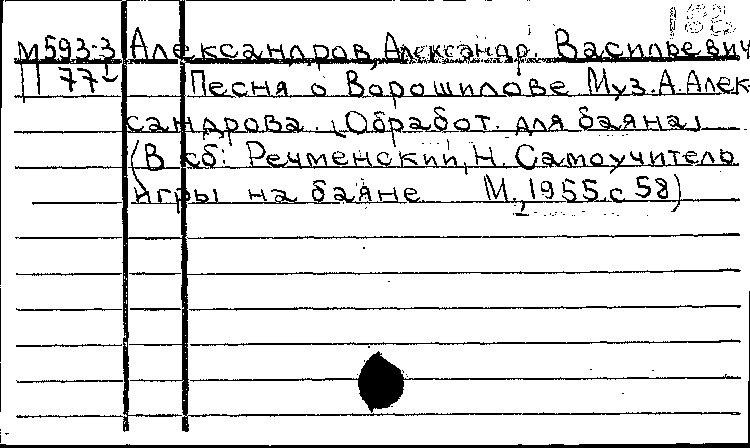 188
М593-3 Александров, Александр. Васильевич
77 Песня о Ворошилове Муз. А. Алек-
сандрова. [Обработ. для баяна]
(В сб: Речменский, Н. Самоучитель
игры на баяне М., 1955. с 58)